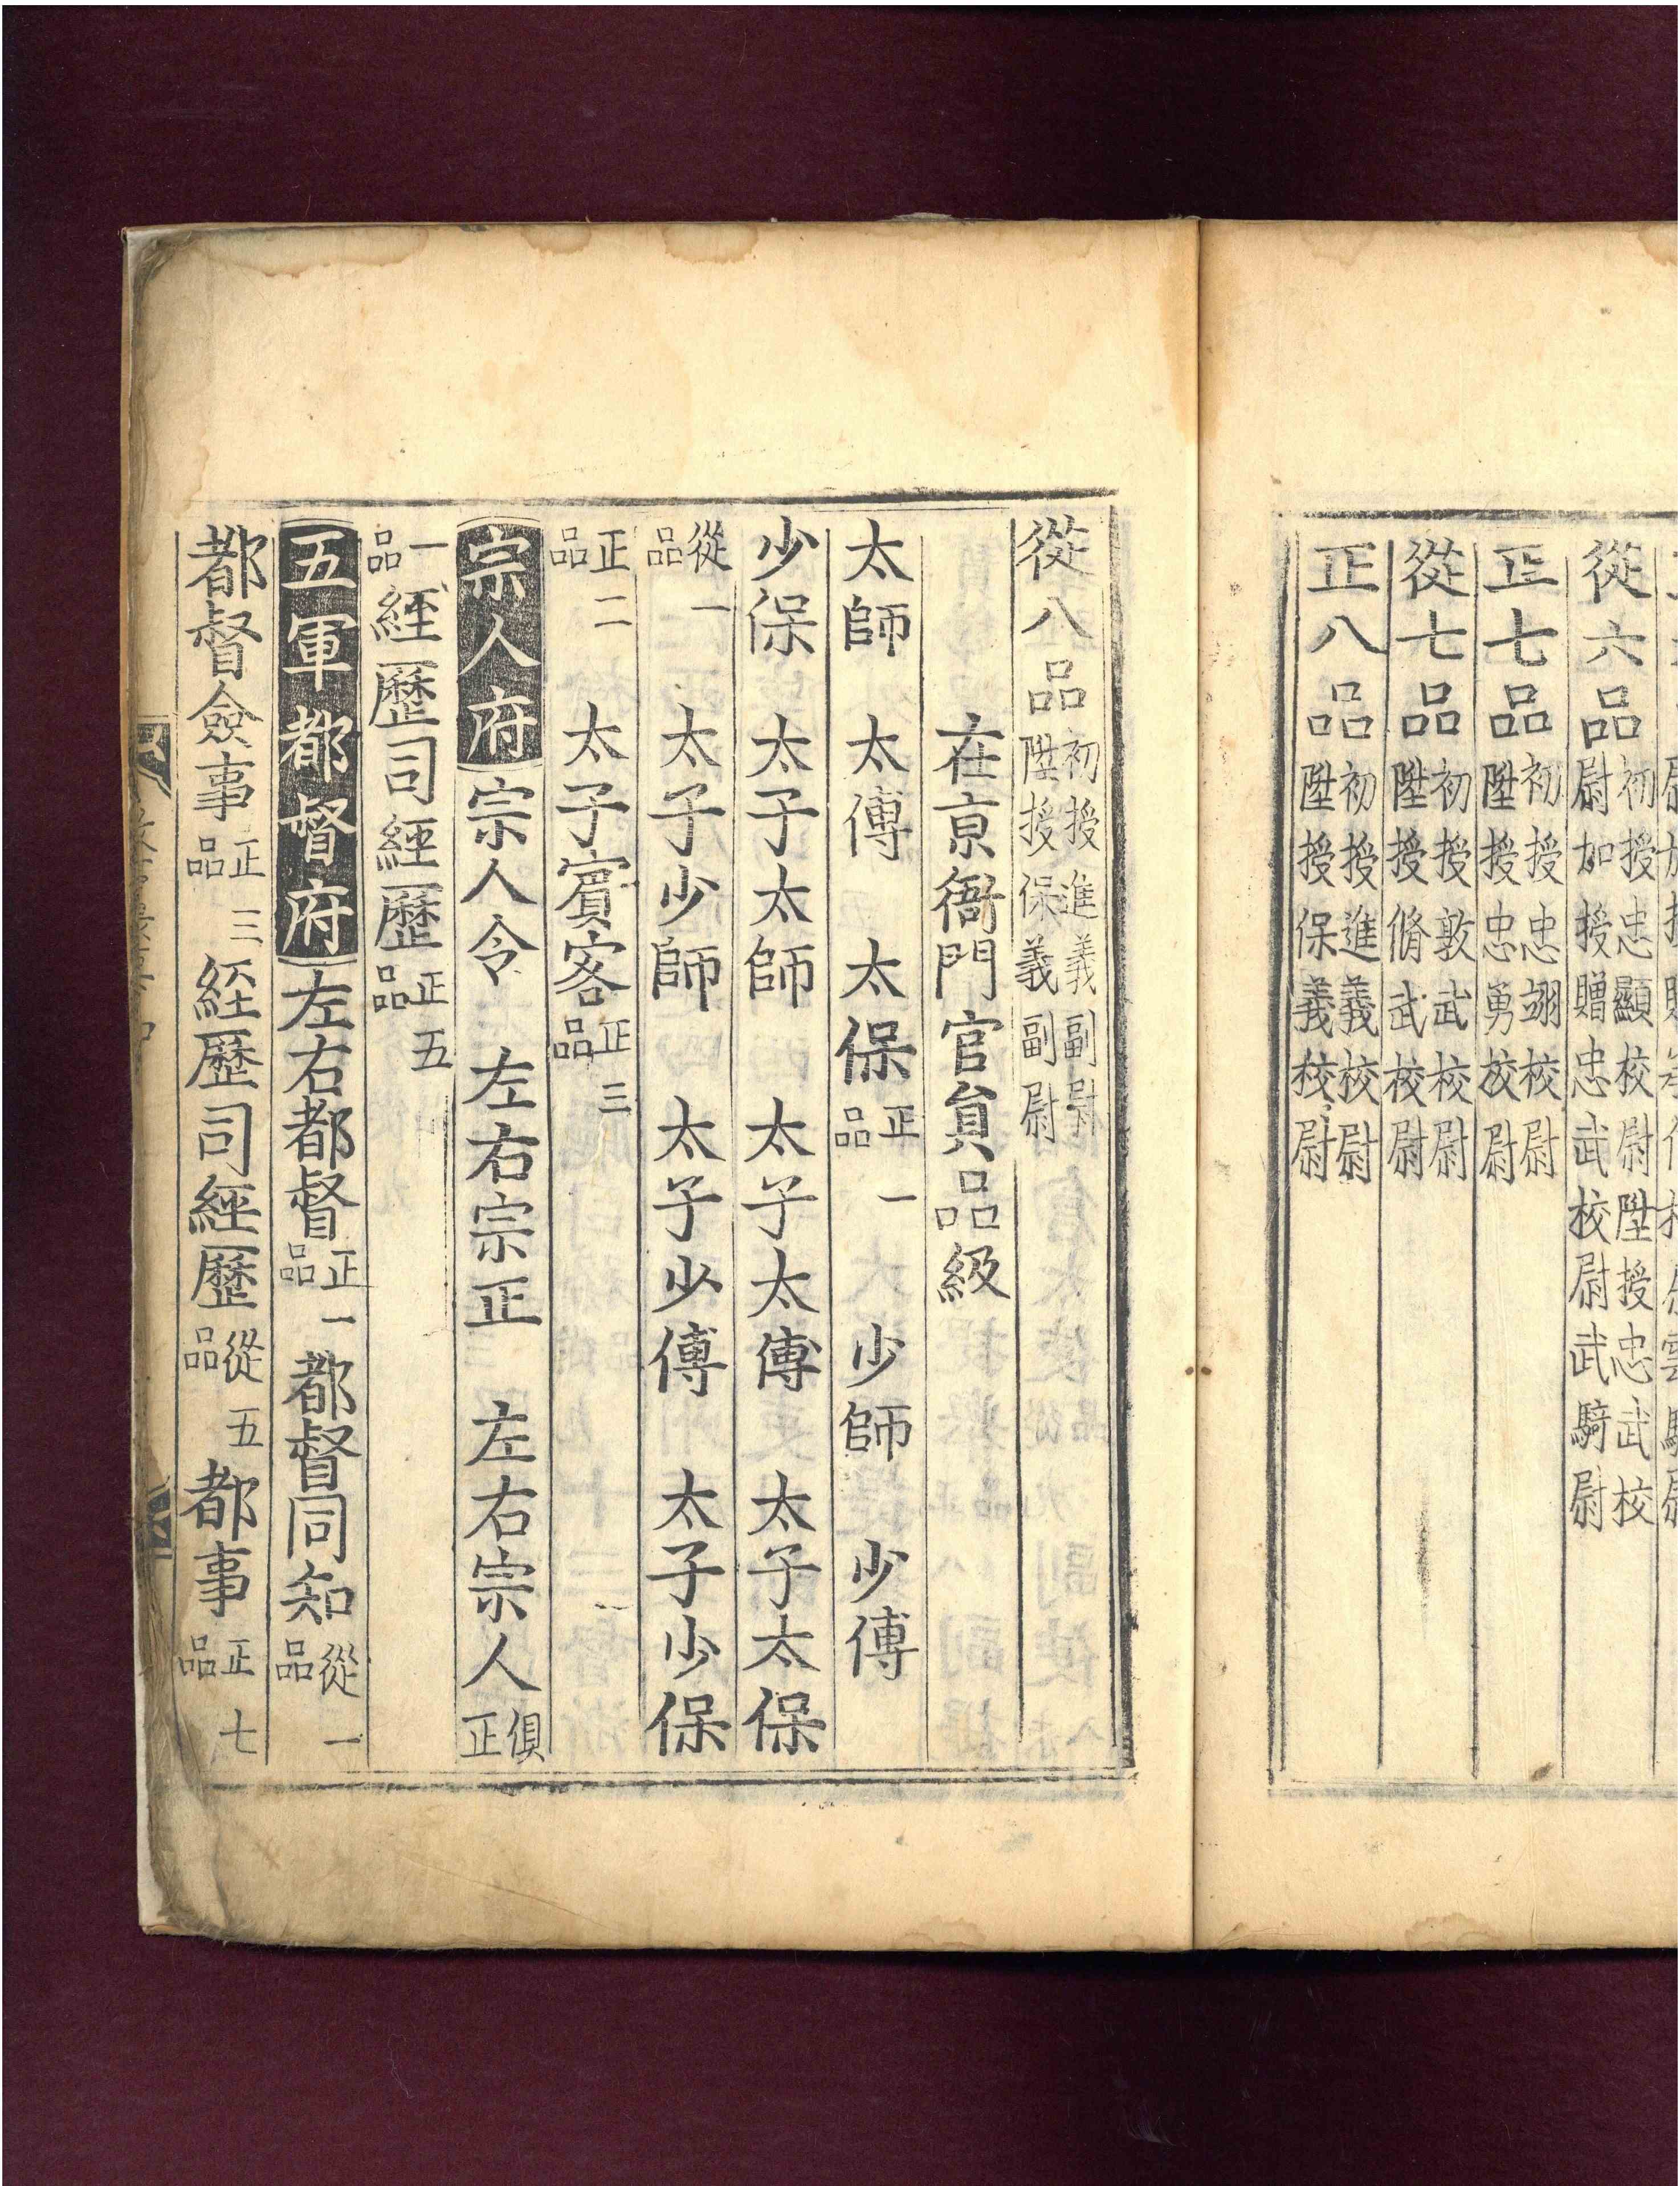 從六品初授忠顯校尉陞授忠武校
尉加授贈忠武校尉武騎尉
正七品初授忠翊校尉
陞授忠勇校尉
從七品初授敦武校尉
陞授脩武校尉
正八品初授進義校尉
陞授保義校尉
從八品初授進義副尉
陞授保義副尉
在京衙門官員品級
太師 太傅 太保正一品 少師 少傅
少保 太子太師 太子太傅 太子太保
從一品 太子少師 太子少傅 太子少保
正二品 太子賓客正三品
宗人府 宗人令 左右宗正 左右宗人俱正
一品 經歷司經歷正五品
五軍都督府 左右都督正一品 都督同知從一品
都督僉事正三品 經歷司經歷從五品 都事正七品